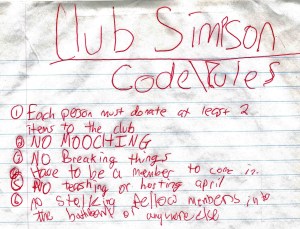 Club Simpson
Code/Rules
① Each person must donate at least 2
items to the club
② NO MOOCHING
③ NO Breaking things
④ Have to be a member to come in.
⑤ NO teashing or hosting april
⑥ no Stalking fellow members into
the bathroom or anywhere else